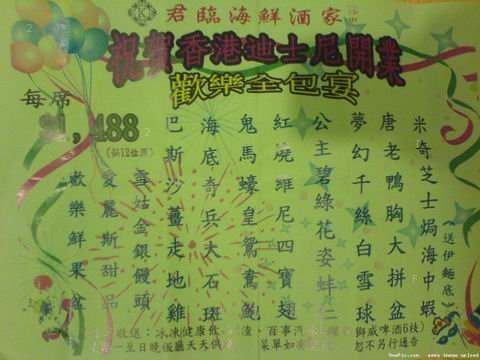 君臨海鮮酒家
祝賀香港迪士尼開業
歡樂全包宴
每席
$1,488
(供12位用)
米奇芝士焗海中蝦
(送伊麵底)
唐老鴨胸大拼盆
夢幻千絲白雪球
公主碧綠花姿蚌仁
紅燒維尼四寶翅
鬼馬蠔皇鴛鴦鮑
海底奇兵大石斑
巴斯沙薑走地雞
雪姑金銀饅頭
愛麗斯甜品
歡樂鮮果盆
敬送：冰凍健康低
渣、百事汽
獅威啤酒6枝)
一至日晚飯廳天天供
菜單如有
恕不另行通告
OnePic.com easy image upload